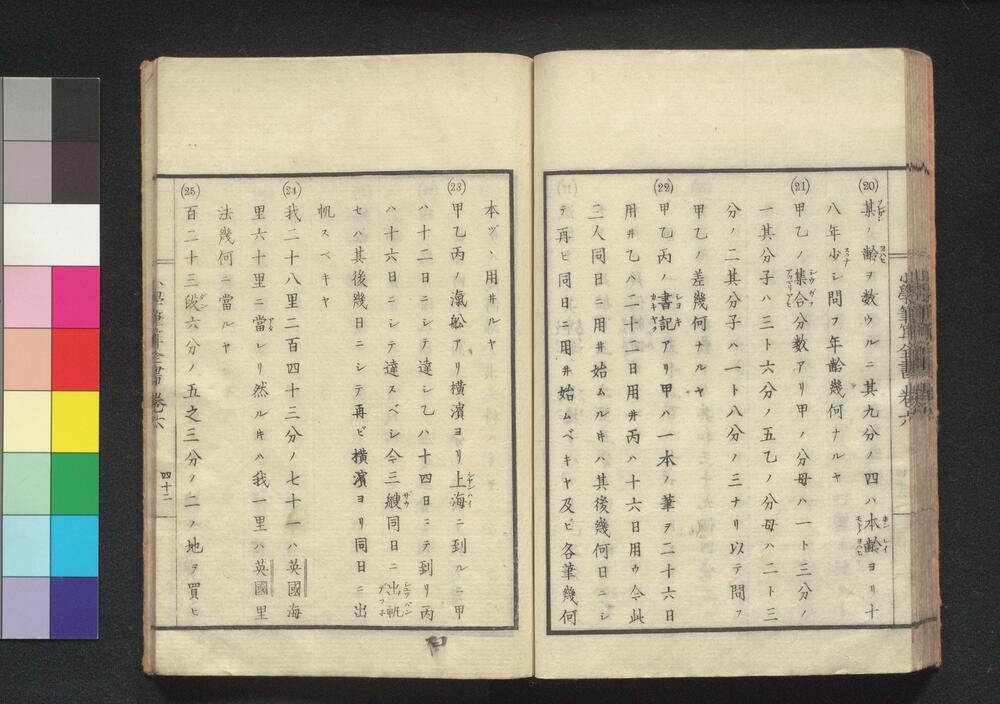 (20) 某ノ齡ヲ数ウルニ其九分ノ四ハ本齡ヨリ十
八年少シ問フ年齡幾何ナルヤ
(21) 甲乙ノ集合分数アリ甲ノ分母ハ一ト三分ノ
一其分子ハ三ト六分ノ五乙ノ分母ハ二ト三
分ノ二其分子ハ一ト八分ノ三ナリ以テ問フ
甲乙ノ差幾何ナルヤ
(22) 甲乙丙ノ書記アリ甲ハ一本ノ筆ヲ二十六日
用井乙ハ二十二日用井丙ハ十六日用ウ今此
二人同日ニ用井始ムルキハ其後幾何日ニシ
テ再ビ同日ニ用井始ムベキヤ及ビ各筆幾何
本ヅヽ用井ルヤ
(23) 甲乙丙ノ滊船アリ横濱ヨリ上海ニ到ルニ甲
ハ十二日ニシテ達シ乙ハ十四日ニテ到リ丙
ハ十六日ニシテ達スベシ今三艘同日ニ出帆
セハ其後幾日ニシテ再ビ横濱ヨリ同日ニ出
帆スベキヤ
(24) 我二十八里二百四十三分ノ七十一ハ英國海
里六十里ニ當レリ然ルキハ我一里ハ英國里
法幾何ニ當ルヤ
(25) 百二十三段六分ノ五之三分ノ二ノ地ヲ買ヒ
小學筆算全書 卷六
四十二